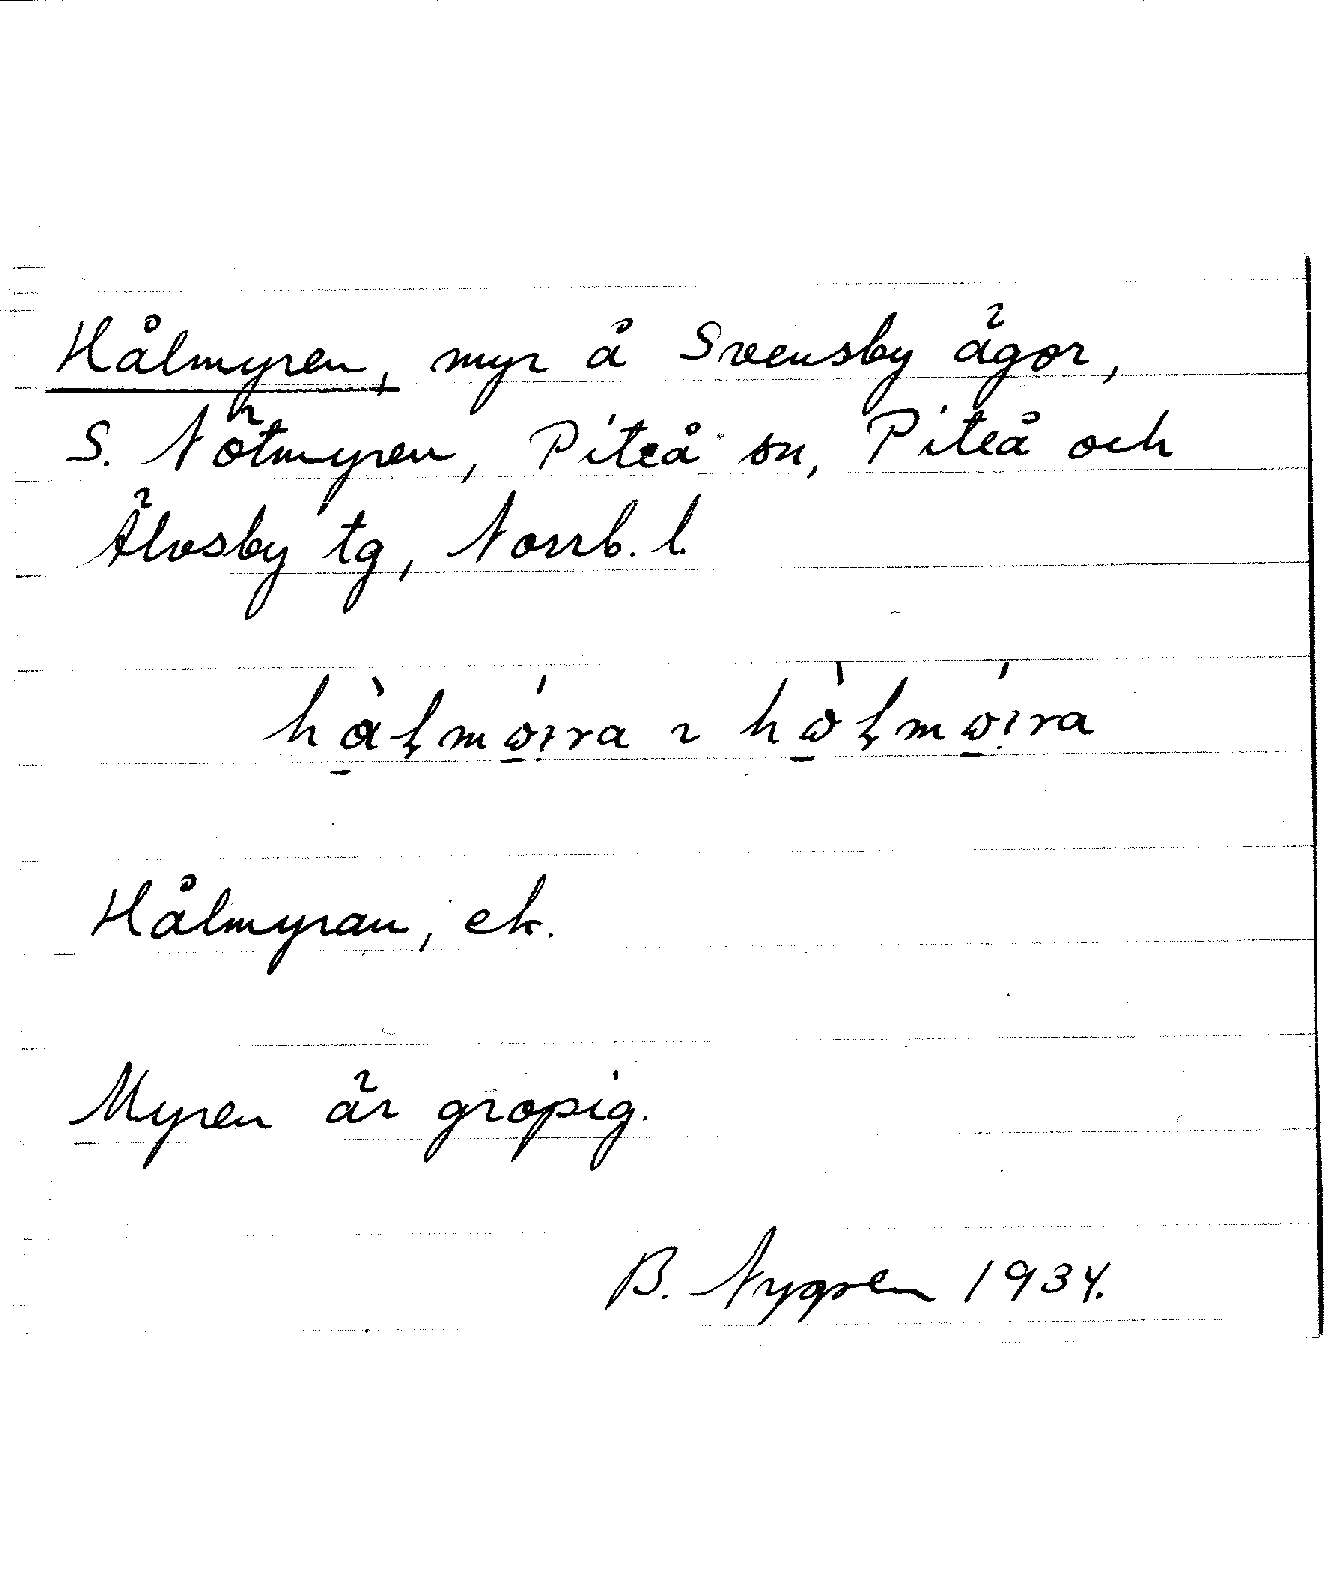 Hålmyren, myr å Svensby ägor,
S. Nötmyren, Piteå sn, Piteå och
Älvsby tg, Norrb. l.
Hålmyran, ek.
Myren är gropig.
B. Nygren 1934.